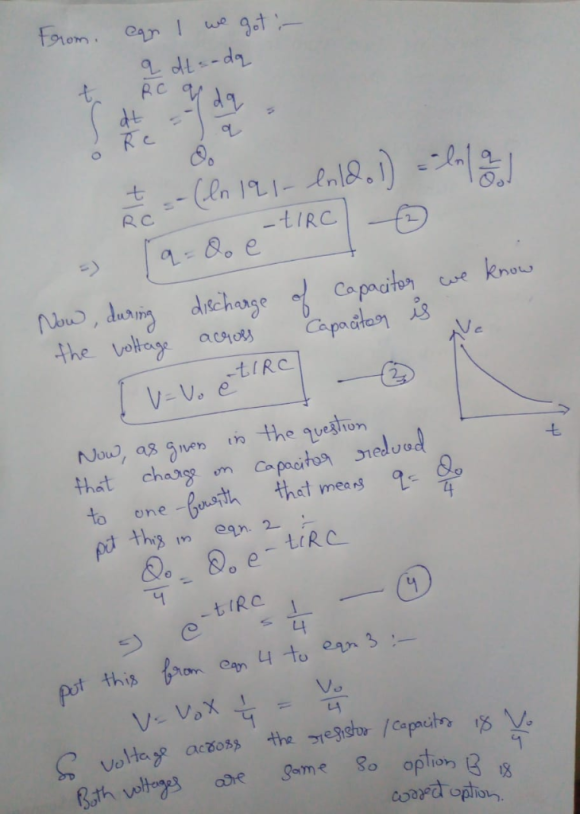 From. eqn 1 we got :-
q/RC dt = -dq
∫₀ᵗ dt/RC = -∫_{Q₀}^{q} dq/q =
t/RC = -(ln|q| - ln|Q₀|) = -ln|q/Q₀|
=> q = Q₀ e^{-t/RC} — (2)
Now, during discharge of Capacitor we know
the voltage across Capacitor is
V = V₀ e^{-t/RC} — (3)
Vc
t
Now, as given in the question
that charge on capacitor reduced
to one-fourth that means q = Q₀/4
put this in eqn. 2 :-
Q₀/4 = Q₀ e^{-t/RC}
=> e^{-t/RC} = 1/4 — (4)
put this from eqn 4 to eqn 3 :-
V = V₀ × 1/4 = V₀/4
So voltage across the resistor / capacitor is V₀/4
Both voltages are same so option B is
correct option.